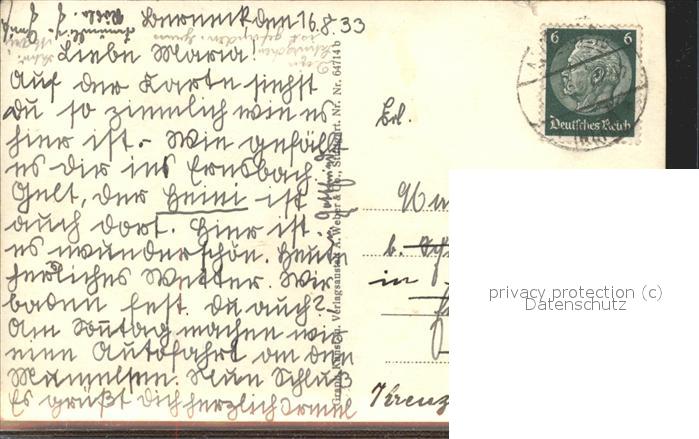 Berneck den 16.8.33
Liebe Maria!
Auf der Karte siehst
du so ziemlich wie es
hier ist. Wie gefällt
es dir in Ernsbach.
Gelt, der Heini ist
auch dort. Hier ist
es wunderschön. Heute
herrliches Wetter. Wir
baden fest. du auch?
Am Sonntag machen wir
eine Autofahrt an den
Mummelsee. Nun Schluß
Es grüßt Dich herzlich Irmel
Graph. Kunst- u. Verlagsanstalt A. Weber & Co., Stuttgart. Nr. 64714b
6 6
Deutsches Reich
b.
in
Kreuz
privacy protection (c)
Datenschutz